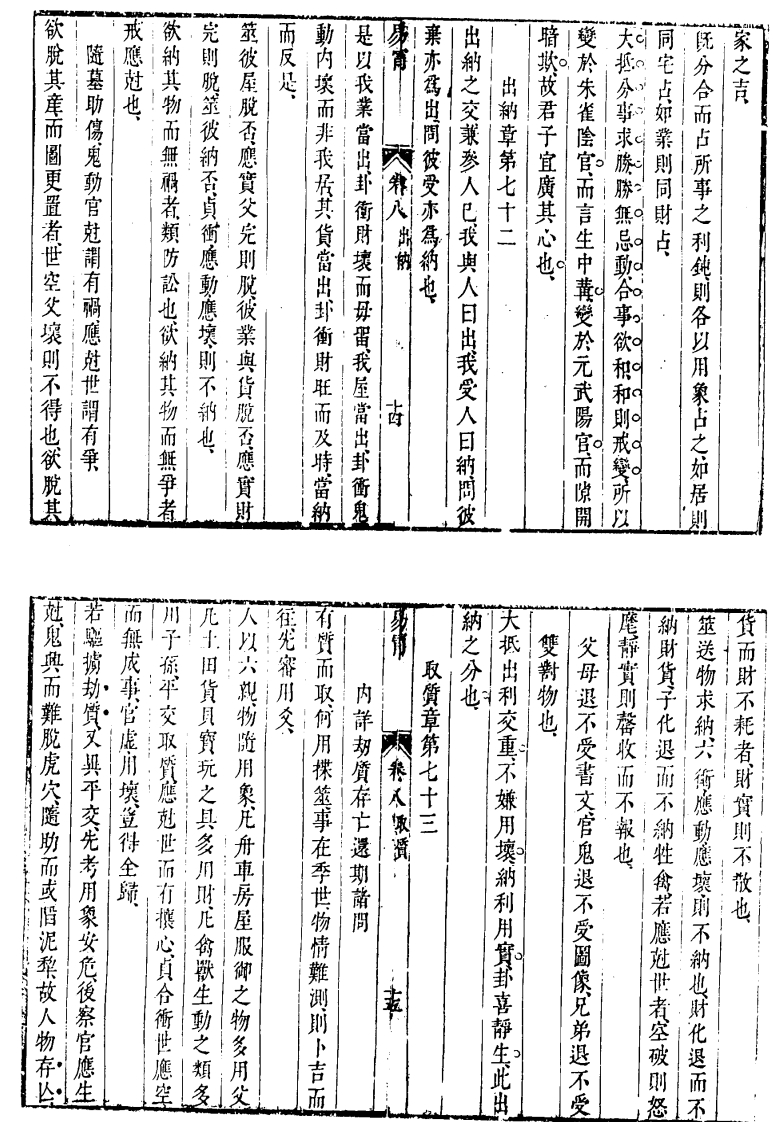 家之吉、
既分合而占所事之利鈍、則各以用象占之、如居則
同宅占、如業則同財占、
大抵分事求勝、勝無忌動、合事欲和、和則戒變、所以
變於朱雀陰官、而言生中冓、變於元武陽官、而隙開
暗欺、故君子宜廣其心也、
出納章第七十二
出納之交、兼參人己、我與人曰出、我受人曰納、問彼
棄亦為出、問彼受亦為納也、
易冐 卷八 出納 十四
是以我業當出、卦衝財壞而毋畱、我屋當出、卦衝鬼
動內壞而非我居、其貨當出、卦衝財旺而及時、當納
而反是、
筮彼屋脫否、應實父完則脫、彼業與貨脫否、應實財
完則脫、筮彼納否、貞衝應動應壞、則不納也、
欲納其物而無禍者、類防訟也、欲納其物而無爭者
戒應尅也、
隨墓助傷、鬼動官尅、謂有禍、應尅世、謂有爭、
欲脫其產、而圖更置者、世空父壞則不得也、欲脫其
貨而財不耗者、財實則不散也、
筮送物求納、六衝應動應壞、則不納也、財化退而不
納財貨、子化退而不納牲禽、若應尅世者、空破則怒
麾、靜實則罄收而不報也、
父母退不受書文、官鬼退不受圖像、兄弟退不受
雙對物也、
大抵出利交重、不嫌用壞、納利用實、卦喜靜生、此出
納之分也、
取質章第七十三
易冐 卷八 取質 十五
內詳刼質存亡還期諸問
有質而取、何用揲筮、事在季世、物情難測、則卜吉而
往、先審用爻、
人以六親、物隨用象、凡舟車房屋服御之物多用父
凡土田貨貝寶玩之具多用財、凡禽獸生動之類多
用子孫、平交取質、應尅世而有攘心、貞合衝世應空
而無成事、官虛用壞、豈得全歸、
若驅擄劫質、又與平交、先考用象安危、後察官應生
尅、鬼興而難脫虎穴、隨助而或陷泥犁、故人物存亾、